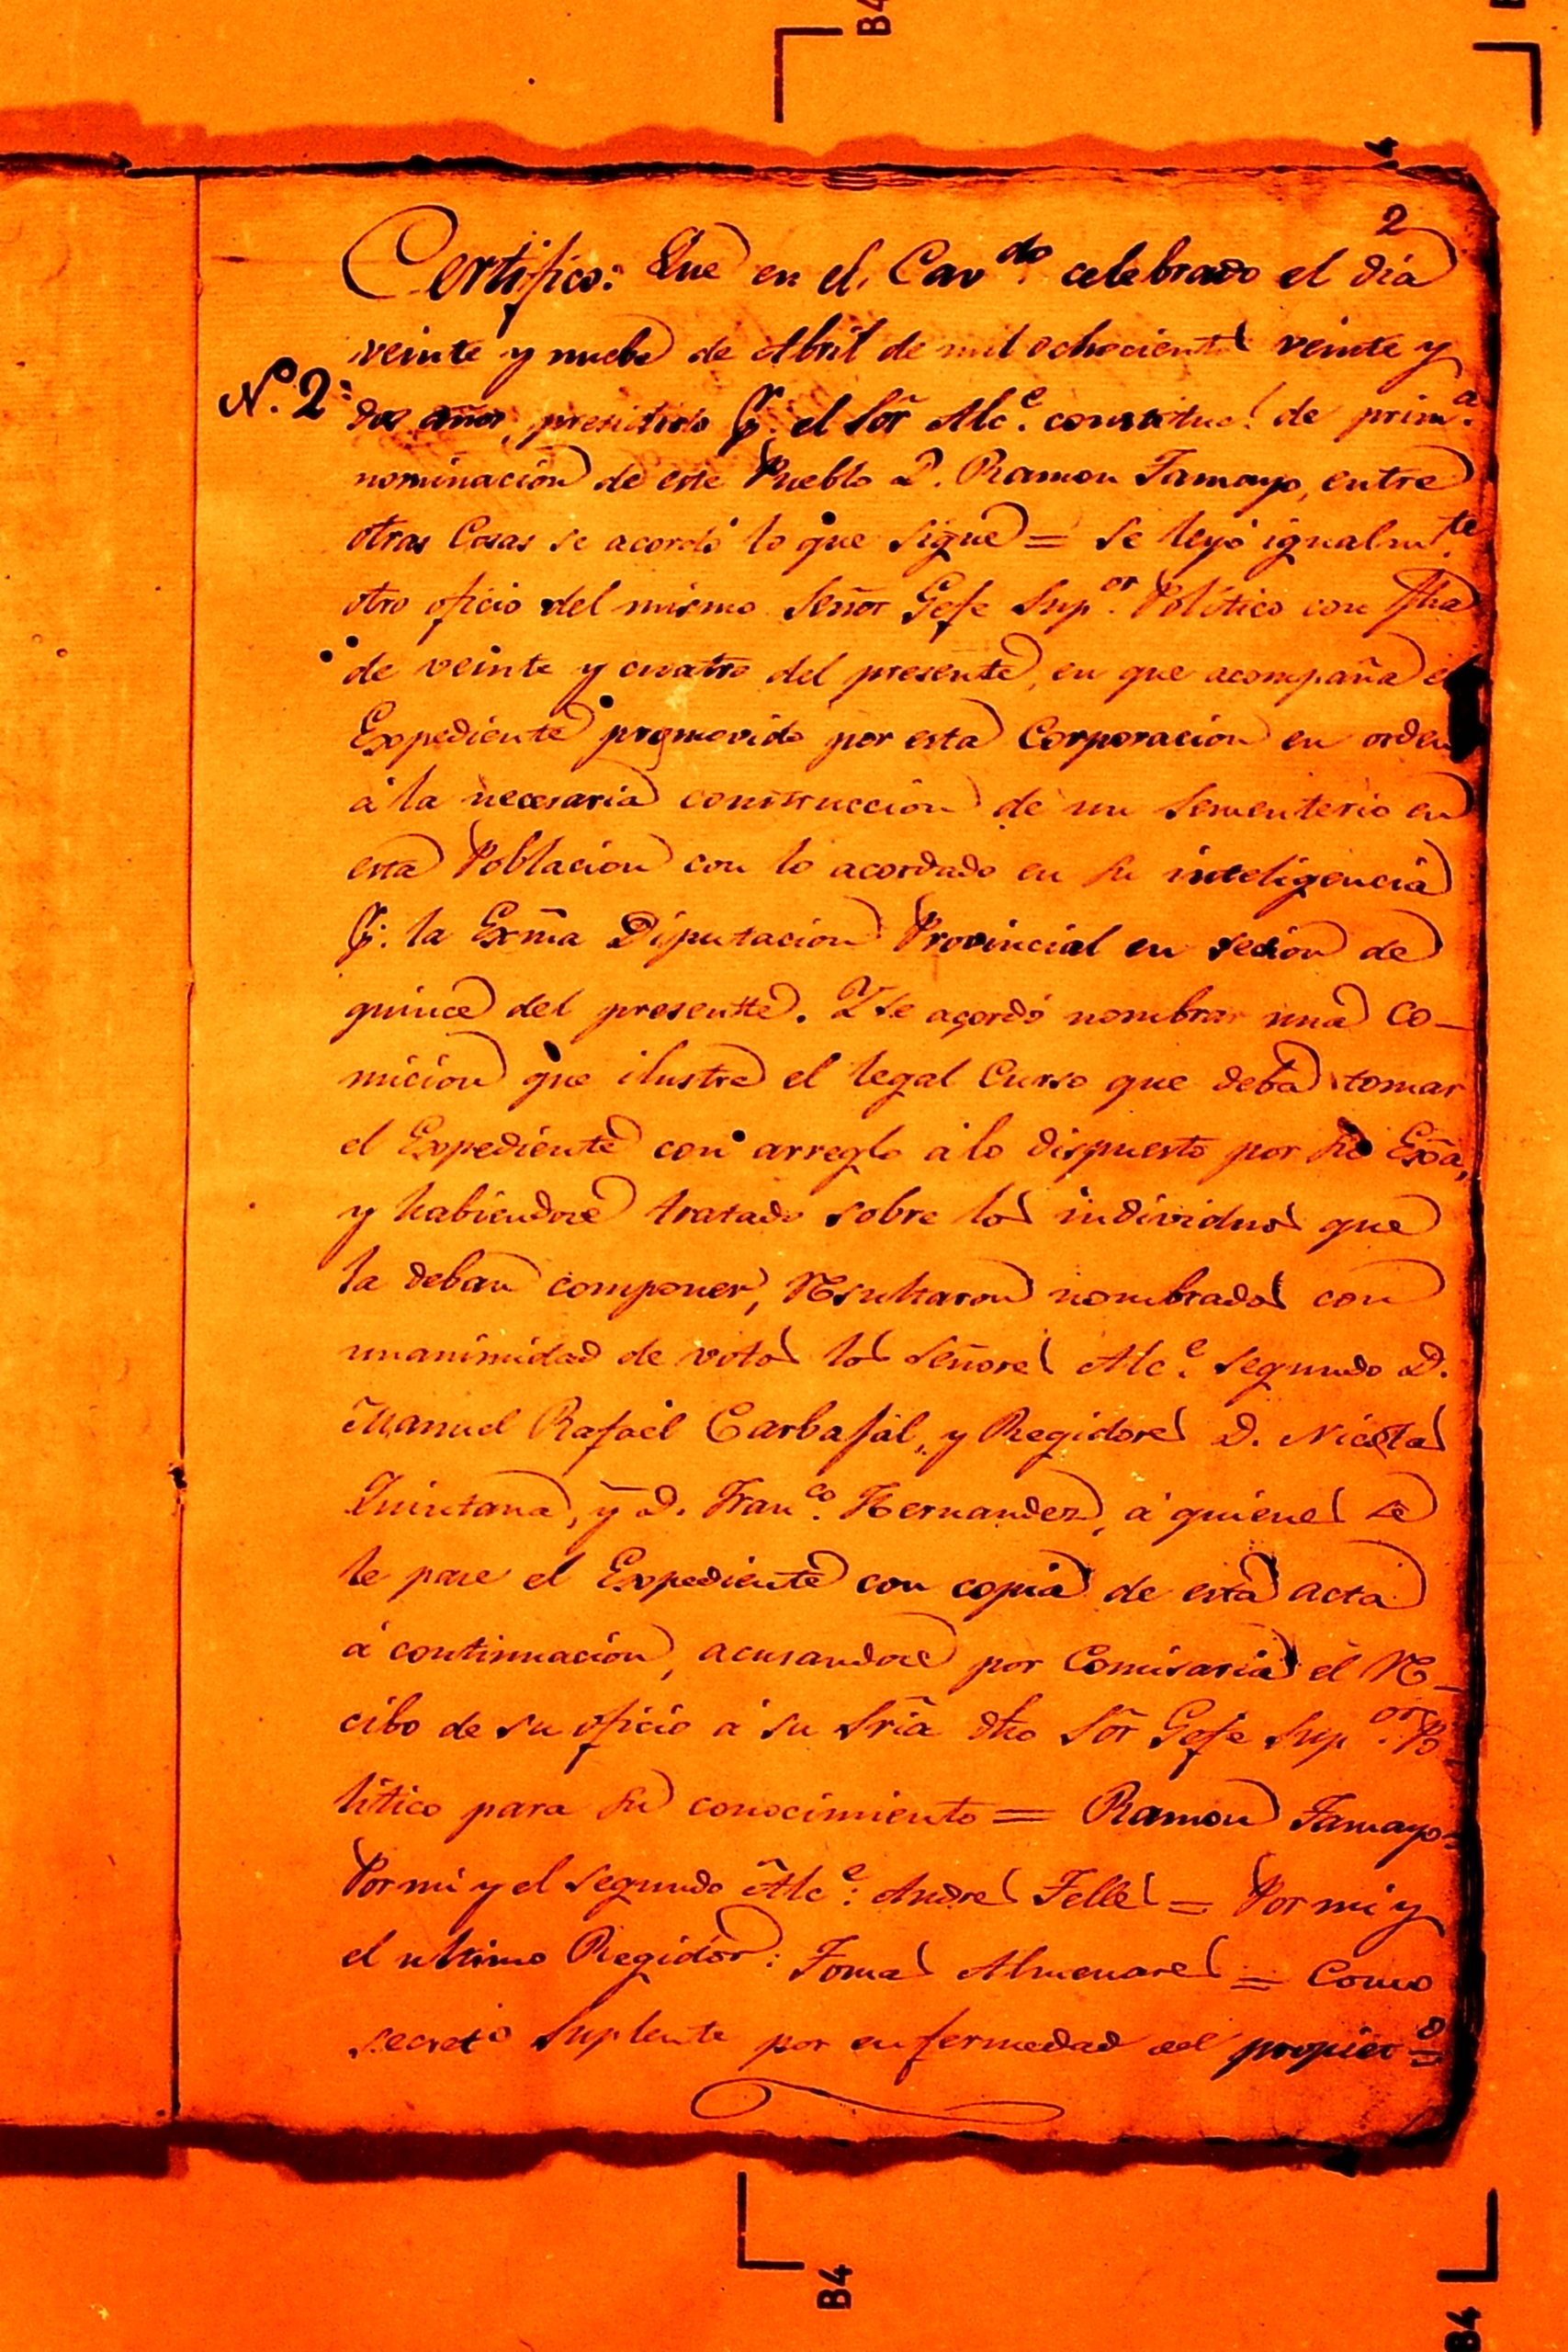 B4
2
Certifico: Que en el Cav.do celebrado el dia
veinte y nuebe de Abril de mil ochocientos veinte y
N.o 2.
dos años, presidido p.r el Sõr Alc.e constituc.l de prim.a
nominación de este Pueblo D. Ramon Tamayo, entre
otras Cosas se acordó lo que sigue = se leyó igualm.te
otro oficio del mismo Señor Gefe Sup.or Político con fha
de veinte y cuatro del presente, en que acompaña el
Expediente promovido por esta Corporación en orden
á la necesaria construcción de un Sementerio en
esta Poblacion con lo acordado en su inteligencia
p.r la Exm̃a Diputacion Provincial en secion de
quince del presente. Y se acordó nombrar una co-
micion que ilustre el legal Curso que deba tomar
el Expediente con arreglo á lo dispuesto por su Exã,
y habiendose tratado sobre los individuos que
la deban componer, Resultaron nombrados con
unanimidad de votos los señores Alc.e segundo D.
Manuel Rafael Carbajal, y Regidores D. Nicolas
Quintana, y D. Fran.co Hernandez, á quienes se
le pase el Expediente con copia de esta acta
á continuación, acusandose por Comisaria el Re-
cibo de su oficio á su Sría dho Sõr Gefe Sup.or Po
lítico para su conocimiento = Ramon Tamayo =
Por mi y el segundo Alc.e: Andres Telles = Por mi y
el ultimo Regidor: Tomas Almenares = Como
secret.o Suplente por enfermedad del propiet.o =
B4
B4